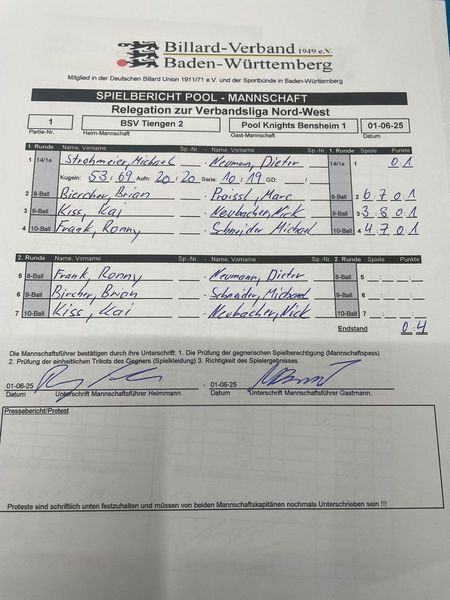 Billard-Verband 1949 e.V.
Baden-Württemberg
Mitglied in der Deutschen Billard Union 1911/71 e.V. und der Sportbünde in Baden-Württemberg
SPIELBERICHT POOL - MANNSCHAFT
Relegation zur Verbandsliga Nord-West
1 BSV Tiengen 2 Pool Knights Bensheim 1 01-06-25
Partie-Nr. Heim-Mannschaft Gast-Mannschaft Datum
1. Runde Name, Vorname Sp.-Nr. - Name, Vorname Sp.-Nr. 1. Runde Spiele Punkte
1 14/1e Strohmeier, Michael - Neumann, Dieter 14/1e 1 0 : 1
Kugeln: 53 : 69 Aufn: 20 : 20 Serie: 10 / 19 GD: /
2 8-Ball Biercher, Brian - Proissl, Marc 8-Ball 2 6 : 7 0 : 1
3 9-Ball Kiss, Kai - Neubacher, Nick 9-Ball 3 3 : 8 0 : 1
4 10-Ball Frank, Ronny - Schneider Michael 10-Ball 4 4 : 7 0 : 1
2. Runde Name, Vorname Sp.-Nr. - Name, Vorname Sp.-Nr. 2. Runde Spiele Punkte
5 8-Ball Frank, Ronny - Neumann, Dieter 8-Ball 5 : :
6 9-Ball Bircher, Brian - Schneider, Michael 9-Ball 6 : :
7 10-Ball Kiss, Kai - Neubacher, Nick 10-Ball 7 : :
Endstand 0 : 4
Die Mannschaftsführer bestätigen durch ihre Unterschrift: 1. Die Prüfung der gegnerischen Spielberechtigung (Mannschaftspass)
2. Prüfung der einheitlichen Trikots des Gegners (Spielkleidung) 3. Richtigkeit des Spielergebnisses.
01-06-25 - 01-06-25
Datum Unterschrift Mannschaftsführer Heimmann. Datum Unterschrift Mannschaftsführer Gastmann.
Pressebericht/Protest
Proteste sind schriftlich unten festzuhalten und müssen von beiden Mannschaftskapitänen nochmals Unterschrieben sein !!!